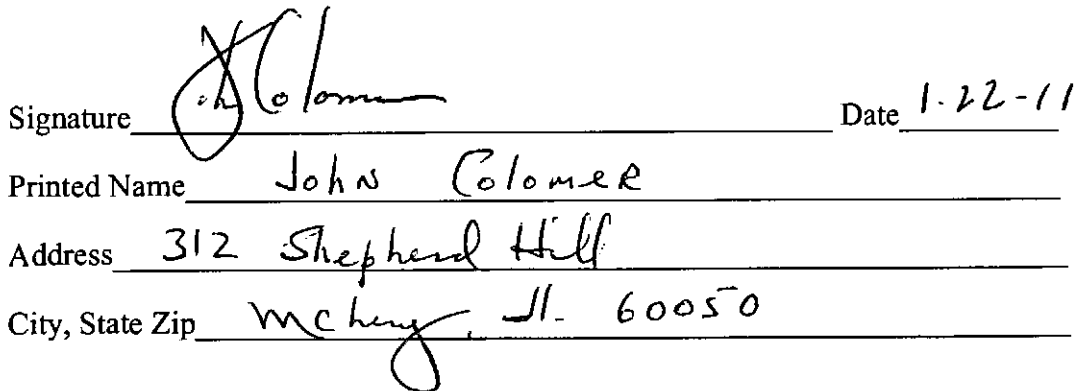 Signature John Colomer Date 1-22-11
Printed Name John Colomer
Address 312 Shepherd Hill
City, State Zip McHenry, Il. 60050